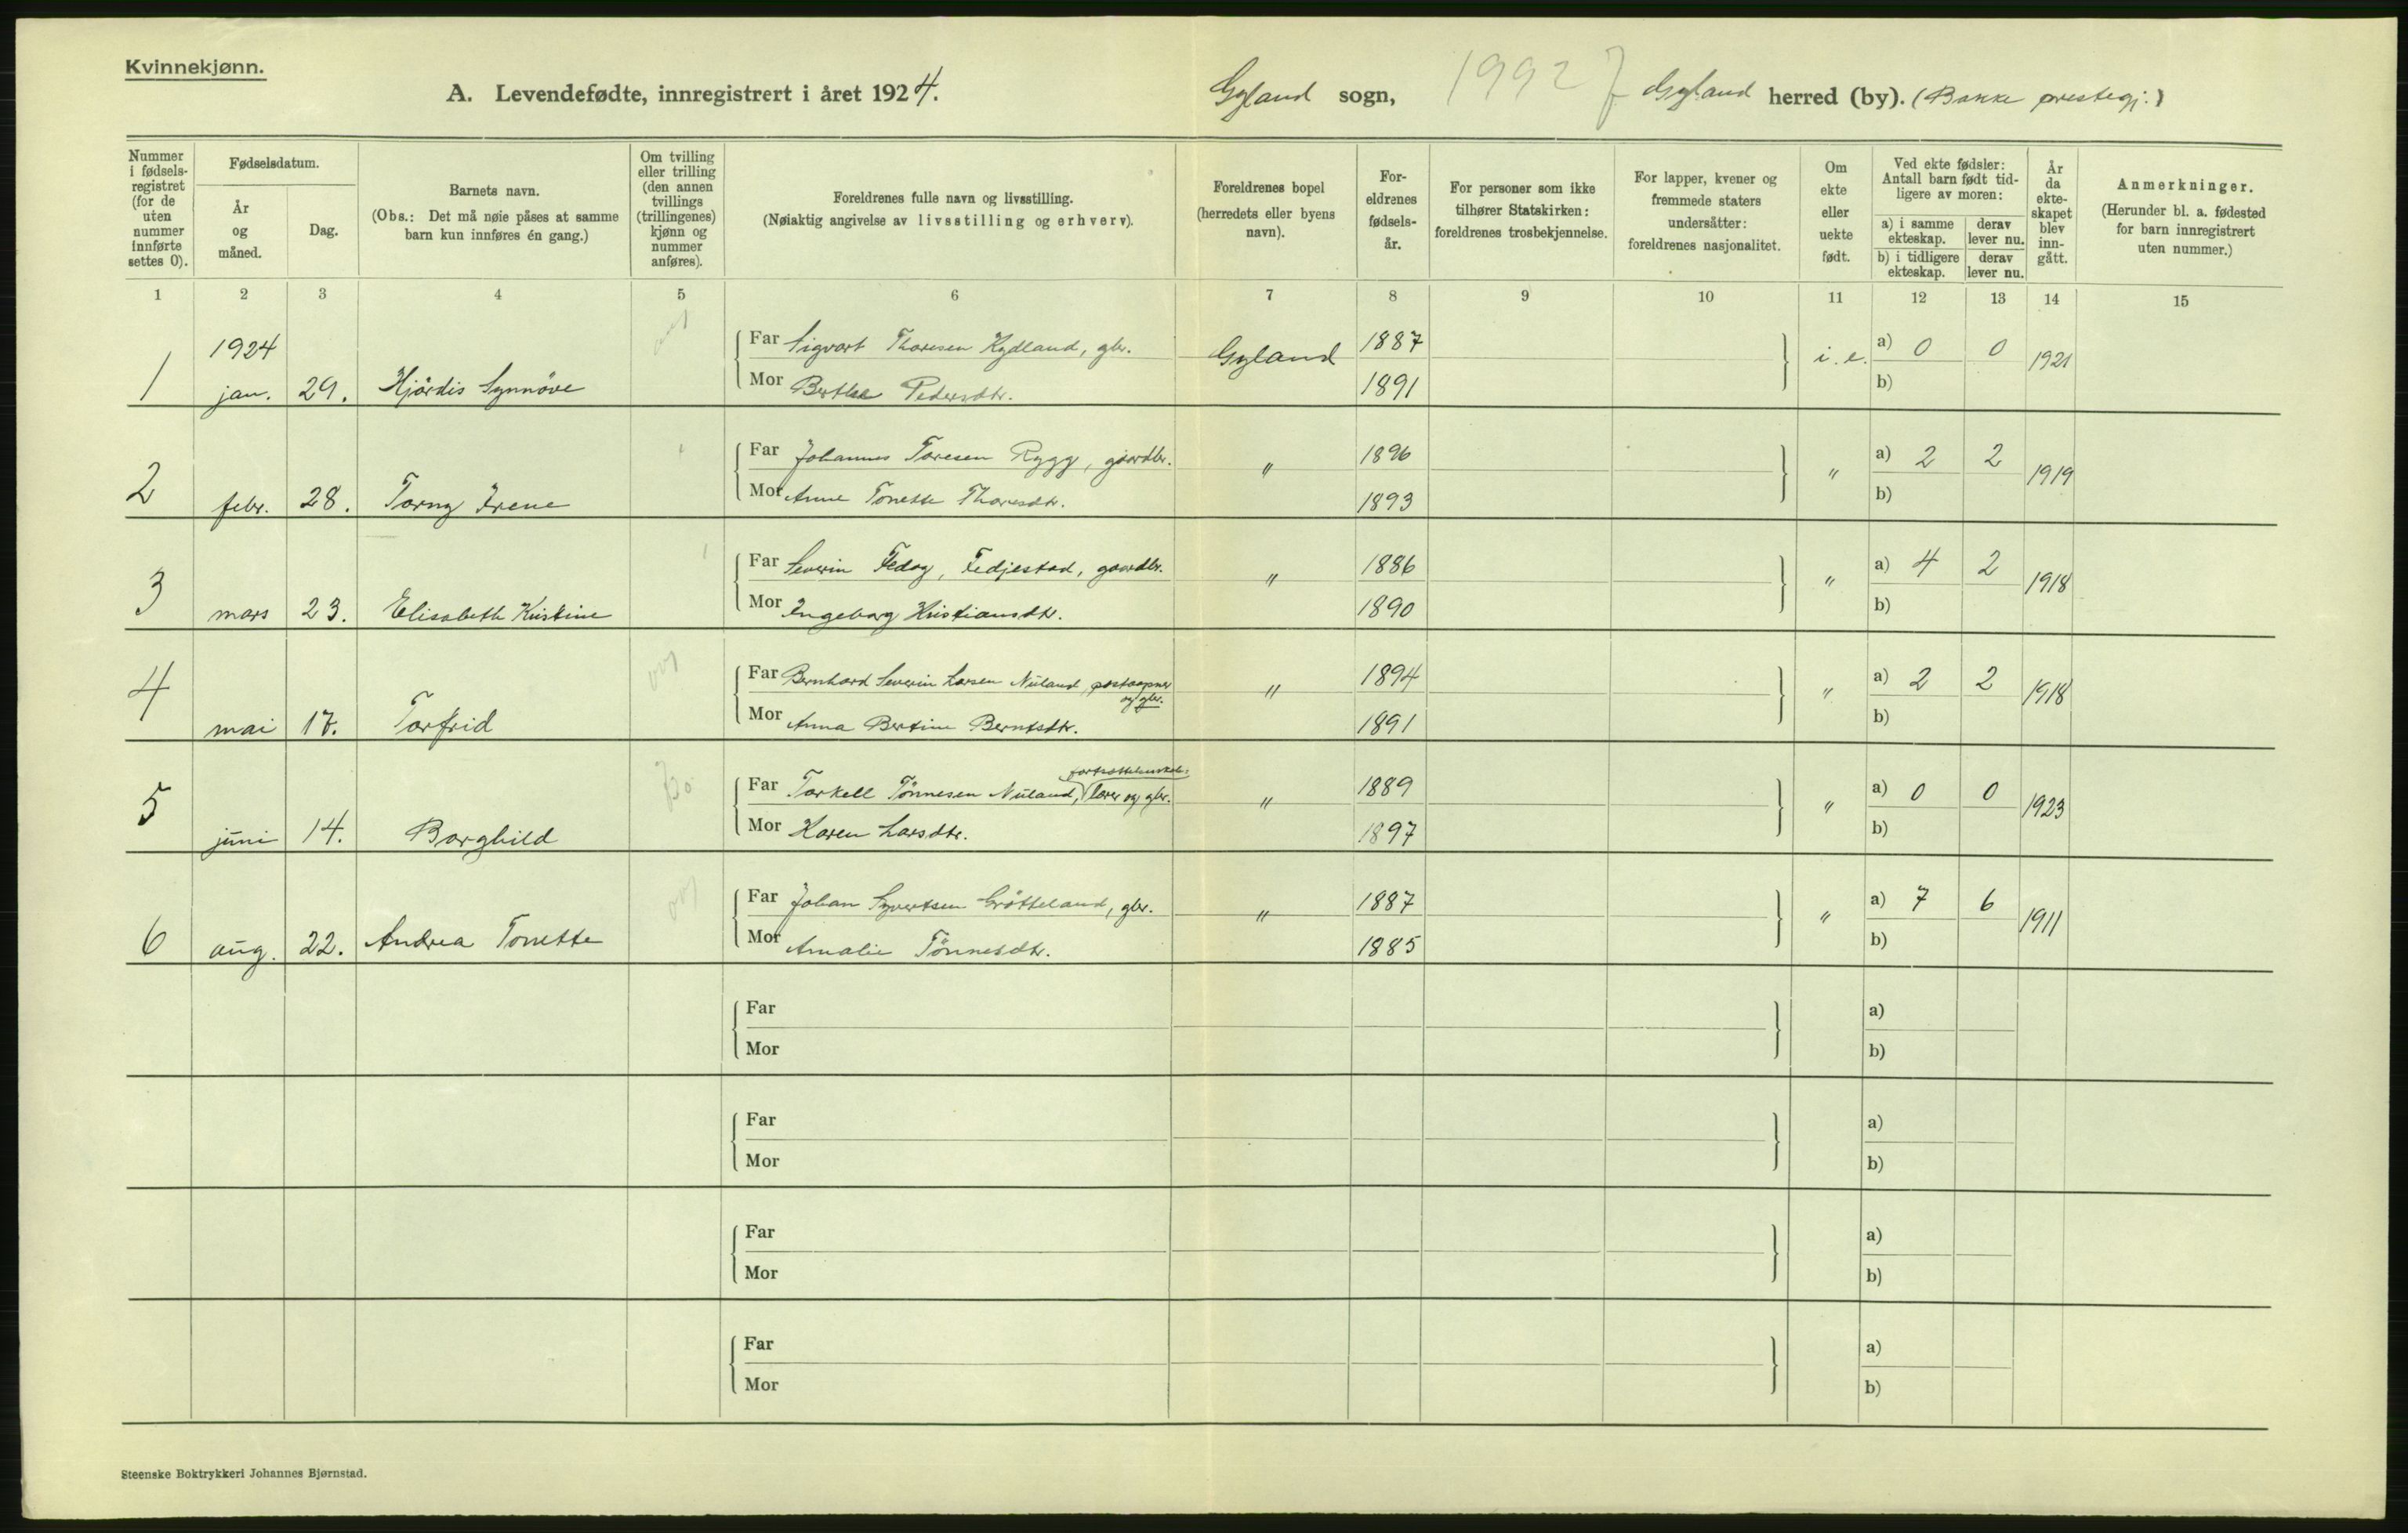 Kvinnekjønn.
A. Levendefødte, innregistrert i året 1924. Gyland sogn, 1992 Gyland herred (by). (Bakke prestegj.)
Nummer i fødselsregistret (for de uten nummer innførte settes 0).
Fødselsdatum.
År og måned.
Dag.
Barnets navn.
(Obs.: Det må nøie påses at samme barn kun innføres én gang.)
Om tvilling eller trilling (den annen tvillings (trillingenes) kjønn og nummer anføres).
Foreldrenes fulle navn og livsstilling.
(Nøiaktig angivelse av livsstilling og erhverv).
Foreldrenes bopel (herredets eller byens navn).
Foreldrenes fødselsår.
For personer som ikke tilhører Statskirken: foreldrenes trosbekjennelse.
For lapper, kvener og fremmede staters undersåtter: foreldrenes nasjonalitet.
Om ekte eller uekte født.
Ved ekte fødsler: Antall barn født tidligere av moren:
a) i samme ekteskap. derav lever nu.
b) i tidligere ekteskap. derav lever nu.
År da ekteskapet blev inngått.
Anmerkninger.
(Herunder bl. a. fødested for barn innregistrert uten nummer.)
1 2 3 4 5 6 7 8 9 10 11 12 13 14 15
1 1924 jan. 29. Hjördis Synnöve
Far Sigvart Thoresen Kydland, gbr. Gyland 1887 i. e. a) 0 0 1921
Mor Berthe Pedersdtr. 1891 b)
2 febr. 28. Torny Irene
Far Johannes Toresen Rygg, gaardbr. " 1896 " a) 2 2 1919
Mor Anne Tonette Thoresdtr. 1893 b)
3 mars 23. Elisabeth Kristine
Far Severin Fedog, Fedjestad, gaardbr. " 1886 " a) 4 2 1918
Mor Ingeborg Kristiansdtr. 1890 b)
4 mai 17. Torfrid
Far Bernhard Severin Larsen Nuland, postaapner og gbr. " 1894 " a) 2 2 1918
Mor Anna Bertine Berntsdtr. 1891 b)
5 juni 14. Borghild
Far Torkell Tönnesen Nuland, lærer og gbr. " 1889 " a) 0 0 1923
Mor Karen Larsdtr. 1897 b)
6 aug. 22. Andrea Tonette
Far Johan Syvertsen Grötteland, gbr. " 1887 " a) 7 6 1911
Mor Amalie Tönnesdtr. 1885 b)
Far a)
Mor b)
Far a)
Mor b)
Far a)
Mor b)
Far a)
Mor b)
Steenske Boktrykkeri Johannes Bjørnstad.